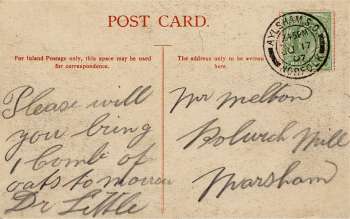 POST CARD.
For Inland Postage only, this space may be used
for correspondence.
The address only to be written
here
AYLSHAM S.O.
7.45PM
JU 17
07
NORFOLK
Please will
you bring
1 Comb of
oats to morrow
Dr Little
Mr Melton
Bolwick Mill
Marsham